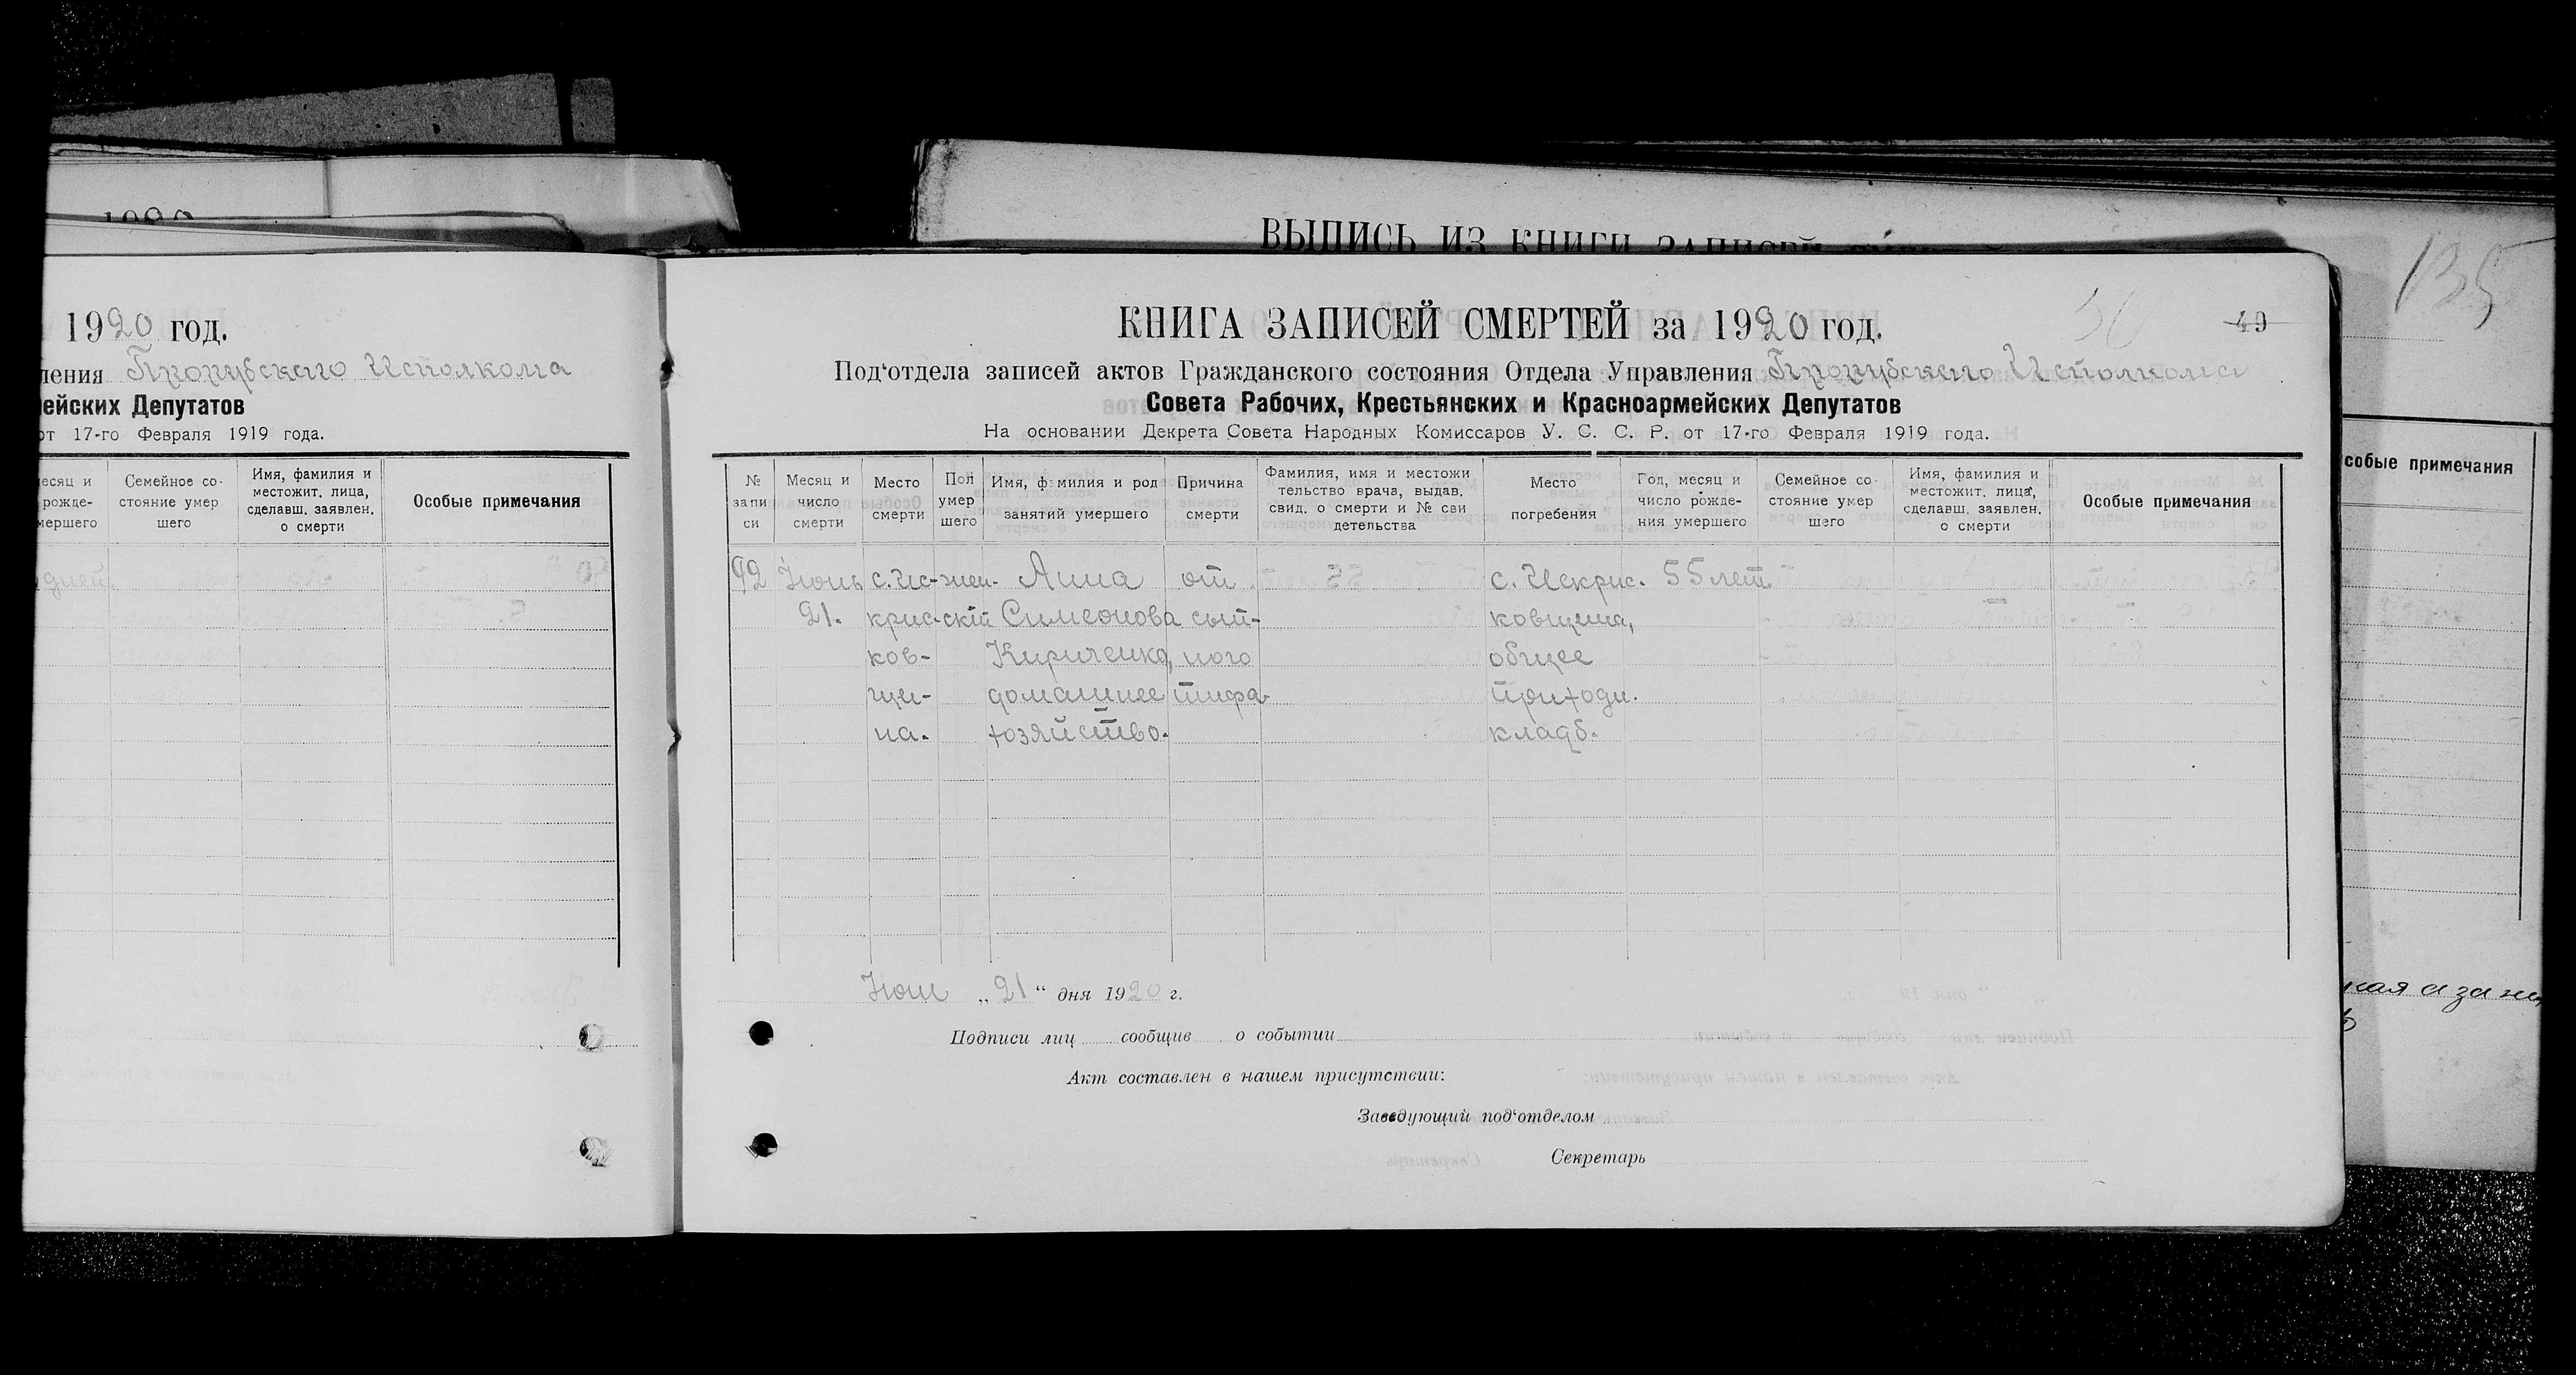 ВЫПИСЬ ИЗ КНИГИ ЗАПИСЕЙ
135
собые примечания
ная а за не
1920 год.
ления Прорубского Исполкома
ейских Депутатов
от 17-го Февраля 1919 года.
есяц и
рожде-
мершего
Семейное со-
стояние умер
шего
Имя, фамилия и
местожит. лица,
сделавш. заявлен.
о смерти
Особые примечания
дней.
КНИГА ЗАПИСЕЙ СМЕРТЕЙ за 1920 год.
50
49
Под‘отдела записей актов Гражданского состояния Отдела Управления Прорубского Исполкома
Совета Рабочих, Крестьянских и Красноармейских Депутатов
На основании Декрета Совета Народных Комиссаров У. С. С. Р. от 17-го Февраля 1919 года.
№
запи
си
Месяц и
число
смерти
Место
смерти
Пол
умер
шего
Имя, фамилия и род
занятий умершего
Причина
смерти
Фамилия, имя и местожи
тельство врача, выдав.
свид. о смерти и № сви
детельства
Место
погребения
Год, месяц и
число рожде-
ния умершего
Семейное со-
стояние умер
шего
Имя, фамилия и
местожит. лица,
сделавш. заявлен.
о смерти
Особые примечания
92 Июнь с. Ис- жен- Анна от с. Искрис. 55 лет
21. крис- скій Симеонова сып- ковщина,
ков- Кириченко, ного общее
щи- домашнее тифа. приходи.
на. хозяйство. кладб.
Июн „21“ дня 1920 г.
Подписи лиц сообщив о событии
Акт составлен в нашем присутствии:
Заведующий под‘отделом
Секретарь